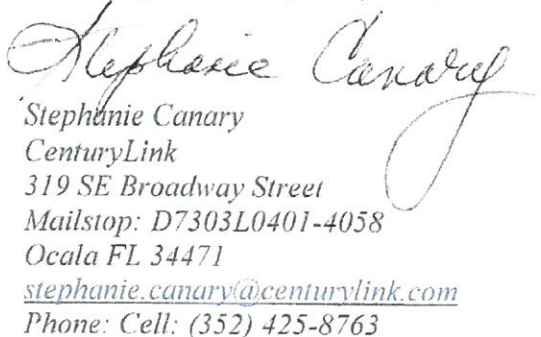 Stephanie Canary
Stephanie Canary
CenturyLink
319 SE Broadway Street
Mailstop: D7303L0401-4058
Ocala FL 34471
stephanie.canary@centurylink.com
Phone: Cell: (352) 425-8763